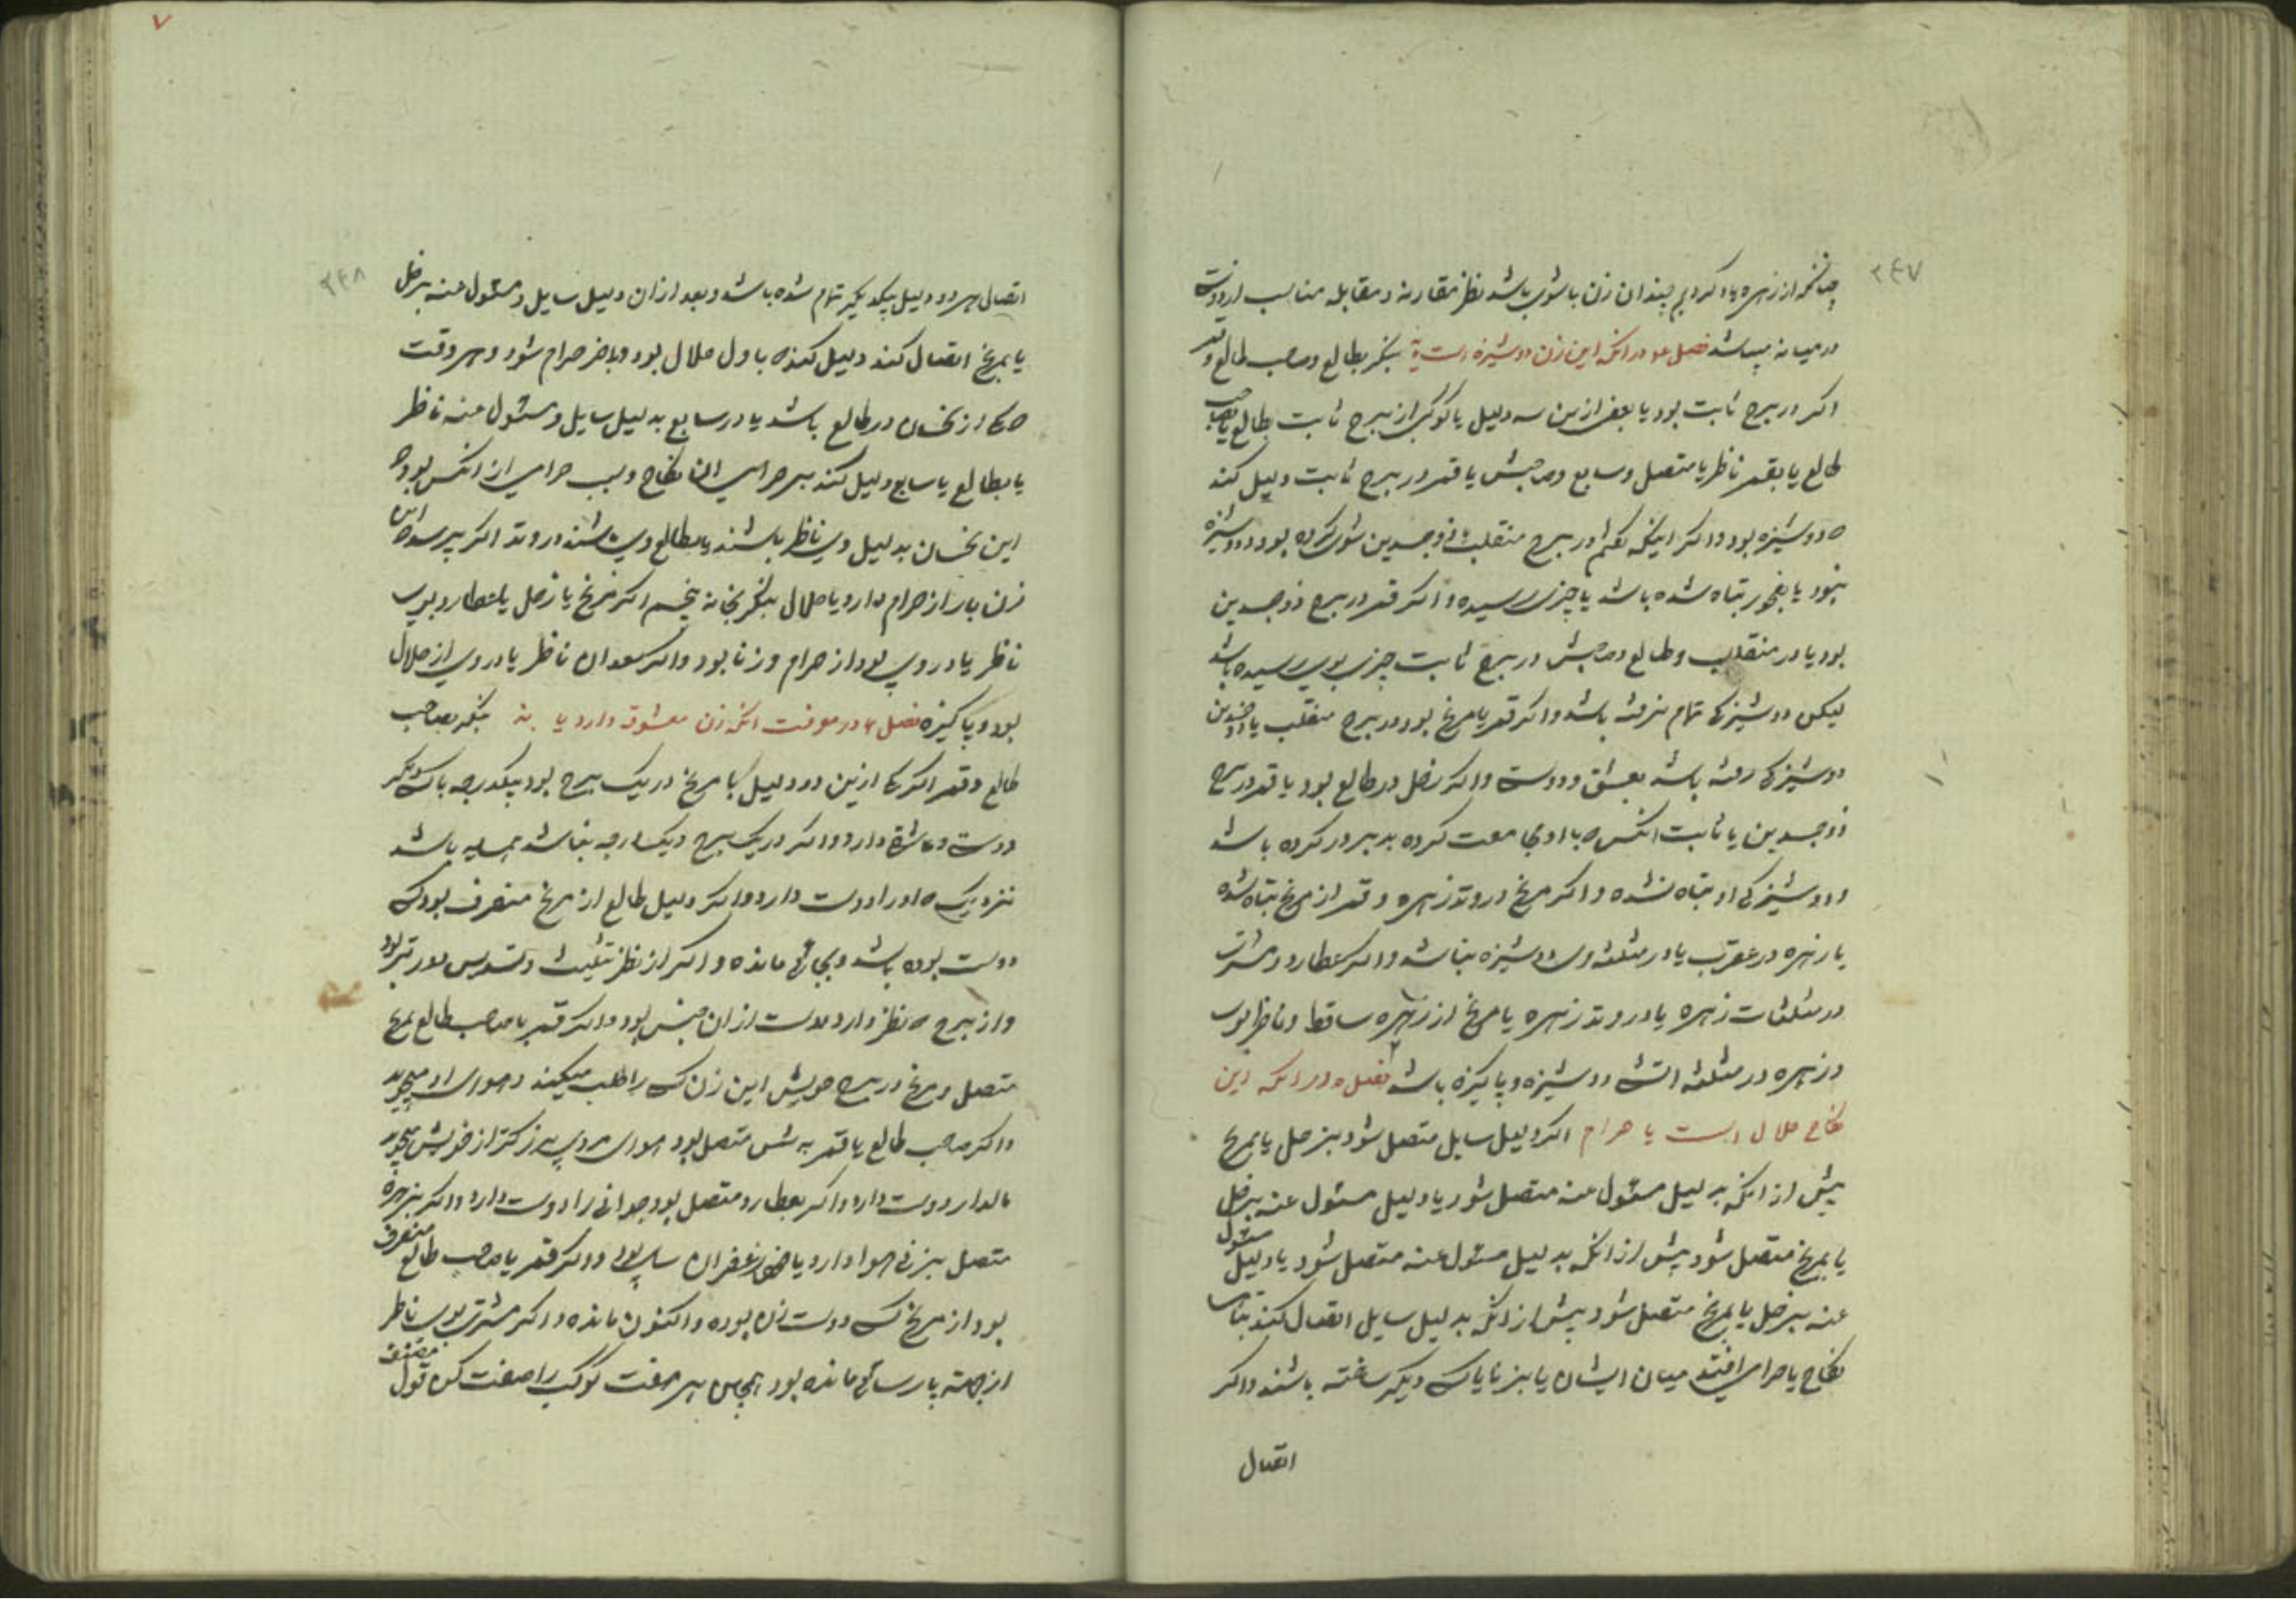 ۲۴۷
چنانکه از زهره یاد کردیم چندان زن باشوی باشد نظر مقارنه و مقابله مناسب
در میانه باشد فصل در انکه این زن دوشیزه است یا نه بنکر بطالع وصاحب طالع و قمر
اکر در برج ثابت بود یا بعضی ازین سه دلیل یا کوکبی از برج ثابت بطالع یا بصاحب
طالع یا بقمر ناظر یا متصل و سابع و صاحبش یا قمر در برج ثابت دلیل کند
که دوشیزه بود و اکر اینکه کفتم در برج منقلب و ذوجسدین شوی کرده بود و دوشیزه
نبود یا بفجور تباه شده باشد یا چیزی رسیده و اکر قمر در برج ذوجسدین
بود یا در منقلب و طالع و صاحبش در برج ثابت چیزی بوی رسیده باشد
لیکن دوشیزکی تمام نرفته باشد و اکر قمر با مریخ بود در برج منقلب یا ذوجسدین
دوشیزکی رفته باشد بعشق و دوست و اکر زحل در طالع بود یا قمر در برج
ذوجسدین یا ثابت انکس که با او مجامعت کرده بدبر در کرده باشد
و دوشیزکی او تباه نشده و اکر مریخ در وتد زهره و قمر از مریخ تباه شده
یا زهره در عقرب یا در مثلثه وی دوشیزه نباشد و اکر عطارد و مشتری
در مثلثات زهره یا در وتد زهره یا مریخ از زهره ساقط و ناظر بوی
و زهره در مثلثه اتشی دوشیزه و پاکیزه باشد فصل ه در انکه این
نکاح حلال است یا حرام اکر دلیل سایل متصل شود بزحل یا بمریخ
پیش از انکه بدلیل مسئول عنه متصل شود یا دلیل مسئول عنه بزحل
یا بمریخ متصل شود پیش از انکه بدلیل مسئول عنه متصل شود یا دلیل مسئول
عنه بزحل یا بمریخ متصل شود پیش از انکه بدلیل سایل اتصال کند
نکاح یا حرامی افتد میان ایشان یا بزنا با یک دیکر ساخته باشند و اکر
اتصال
۷
۲۴۸
اتصال هر دو دلیل بیکدیکر تمام شده باشد و بعد از ان دلیل سایل و مسئول عنه بزحل
یا بمریخ اتصال کند دلیل کند که باول حلال بود و باخر حرام شود و هر وقت
که یکی از نحسان در طالع باشد یا در سابع بدلیل سایل و مسئول عنه ناظر
یا بطالع یا سابع دلیل کند بر حرامی ان نکاح و سبب حرامی از انکس بود که
این نحسان بدلیل وی ناظر باشند یا بطالع وی باشند در وتد اکر پرسد که این
زن بار از حرام دارد یا حلال بنکر بخانه پنجم اکر مریخ یا زحل یا عطارد بوی
ناظر یا در وی بود از حرام و زنا بود و اکر سعدان ناظر یا در وی از حلال
بود و پاکیزه فصل ۶ در معرفت انکه زن معشوق دارد یا نه بنکر بصاحب
طالع و قمر اکر یکی ازین دو دلیل با مریخ در یک برج بود بیکدرجه با کسی دیکر
دوستی و عاشقی دارد و اکر در یک برج و یک درجه نباشد همسایه باشد
نزدیک که او را دوست دارد و اکر دلیل طالع از مریخ منصرف بود کسی
دوست بوده باشد و بجای مانده و اکر از نظر تثلیث و تسدیس دورتر بود
و از برج که نظر دارد دوست از ان جنس بود و اکر قمر با صاحب طالع بمریخ
متصل و مریخ در برج خویش این زن کسی را طلب میکند و هوای او میجوید
و اکر صاحب طالع یا قمر به شمس متصل بود هوای مردی بزرکتر از خویش میجوید
مالدار دوست دارد و اکر بعطارد متصل بود جوانی را دوست دارد و اکر بزهره
متصل بزنی هوا دارد و اکر قمر یا صاحب طالع منصرف
بود از مریخ کسی دوست زن بوده و اکنون مانده و اکر مشتری بوی ناظر
از جهة پارسائی مانده بود همچنین بهر صفت کوکب را صفت کن قول مصنف